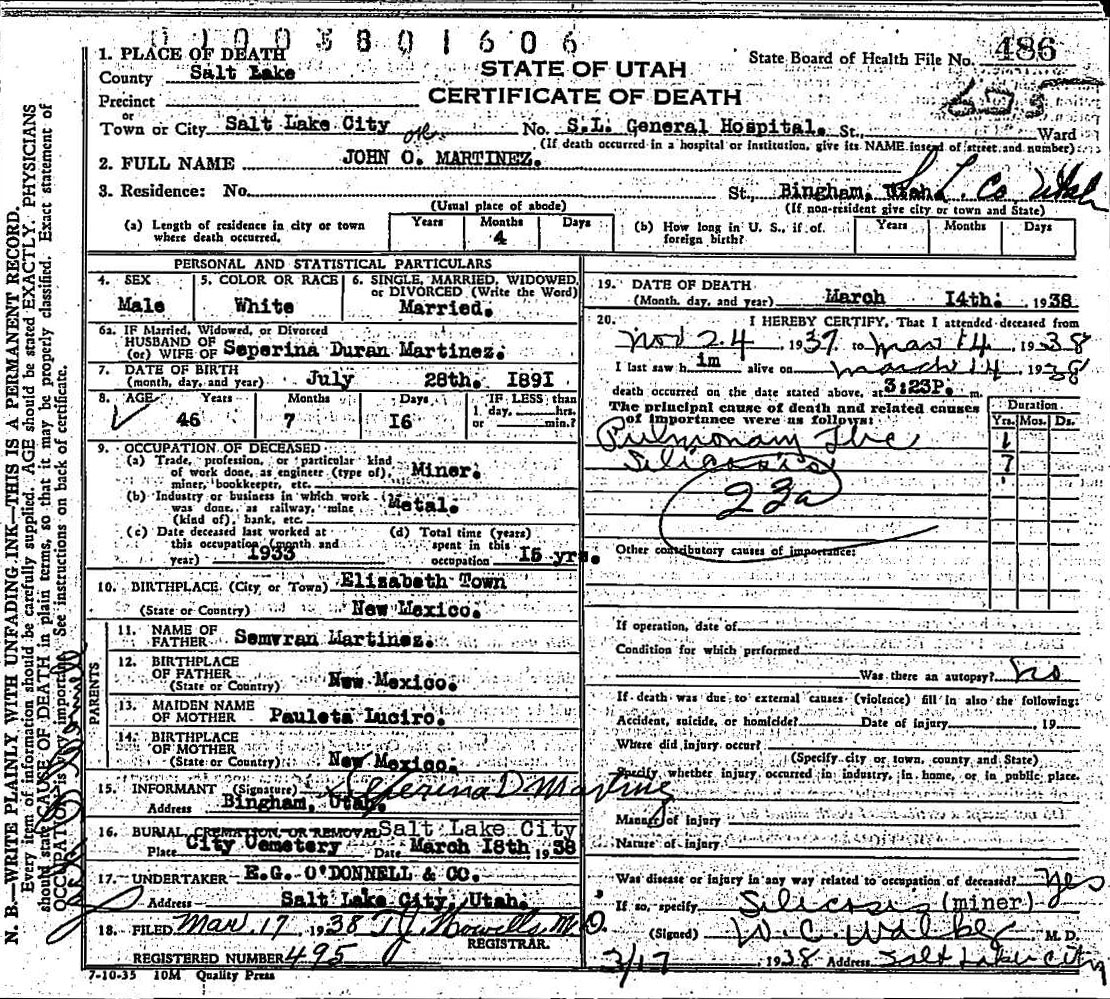 01003801606
1. PLACE OF DEATH
County Salt Lake
STATE OF UTAH
State Board of Health File No. 486
Precinct
CERTIFICATE OF DEATH
or
Town or City Salt Lake City No. S.L. General Hospital. St., Ward
(If death occurred in a hospital or institution, give its NAME instead of street and number)
2. FULL NAME JOHN O. MARTINEZ.
3. Residence: No. St., Bingham, Utah. S. L. Co Utah
(Usual place of abode) (If non-resident give city or town and State)
(a) Length of residence in city or town where death occurred. Years Months 4 Days
(b) How long in U. S., if of foreign birth? Years Months Days
PERSONAL AND STATISTICAL PARTICULARS
4. SEX Male
5. COLOR OR RACE White
6. SINGLE, MARRIED, WIDOWED, or DIVORCED (Write the Word) Married.
6a. IF Married, Widowed, or Divorced
HUSBAND OF
(or) WIFE OF Seperina Duran Martinez.
7. DATE OF BIRTH
(month, day, and year) July 28th. I89I
8. AGE Years 46 Months 7 Days I6 IF LESS than 1 day, hrs. or min.?
9. OCCUPATION OF DECEASED
(a) Trade, profession, or particular kind
of work done, as engineer (type of), Miner.
miner, bookkeeper, etc.
(b) Industry or business in which work
was done, as railway, mine Metal.
(kind of), bank, etc.
(c) Date deceased last worked at
this occupation (month and
year) I933
(d) Total time (years)
spent in this
occupation I5 yrs.
10. BIRTHPLACE (City or Town) Elizabeth Town
(State or Country) New Mexico.
PARENTS
11. NAME OF FATHER Semvran Martinez.
12. BIRTHPLACE OF FATHER
(State or Country) New Mexico.
13. MAIDEN NAME OF MOTHER Pauleta Luciro.
14. BIRTHPLACE OF MOTHER
(State or Country) New Mexico.
15. INFORMANT (Signature) Seperina D Martinez
Address Bingham, Utah.
16. BURIAL, CREMATION, OR REMOVAL Salt Lake City
Place City Cemetery Date March I8th, 1938
17. UNDERTAKER E.G. O'DONNELL & CO.
Address Salt Lake City, Utah.
18. FILED Mar 17, 1938 T.J. Howells, M.D.
REGISTRAR.
REGISTERED NUMBER 495
7-10-35 10M Quality Press
19. DATE OF DEATH
(Month, day, and year) March I4th. , 1938
20. I HEREBY CERTIFY, That I attended deceased from
Nov 24 1937 to Mar 14, 1938
I last saw h im alive on March 14 1938
death occurred on the date stated above, at 3:23P. m.
The principal cause of death and related causes
of importance were as follows:
Duration
Yrs. Mos. Ds.
Pulmonary Tbc 1
Silicosis 7
23a
Other contributory causes of importance:
If operation, date of
Condition for which performed
Was there an autopsy? no
If death was due to external causes (violence) fill in also the following:
Accident, suicide, or homicide? Date of injury , 19
Where did injury occur?
(Specify city or town, county and State)
Specify whether injury occurred in industry, in home, or in public place.
Manner of injury
Nature of injury
Was disease or injury in any way related to occupation of deceased? Yes
If so, specify Silicosis (miner)
(Signed) W. C. Walker M. D.
3/17 1938 Address Salt Lake City
N. B.—WRITE PLAINLY WITH UNFADING INK—THIS IS A PERMANENT RECORD.
Every item of information should be carefully supplied. AGE should be stated EXACTLY. PHYSICIANS
should state CAUSE OF DEATH in plain terms, so that it may be properly classified. Exact statement of
OCCUPATION is very important. See instructions on back of certificate.